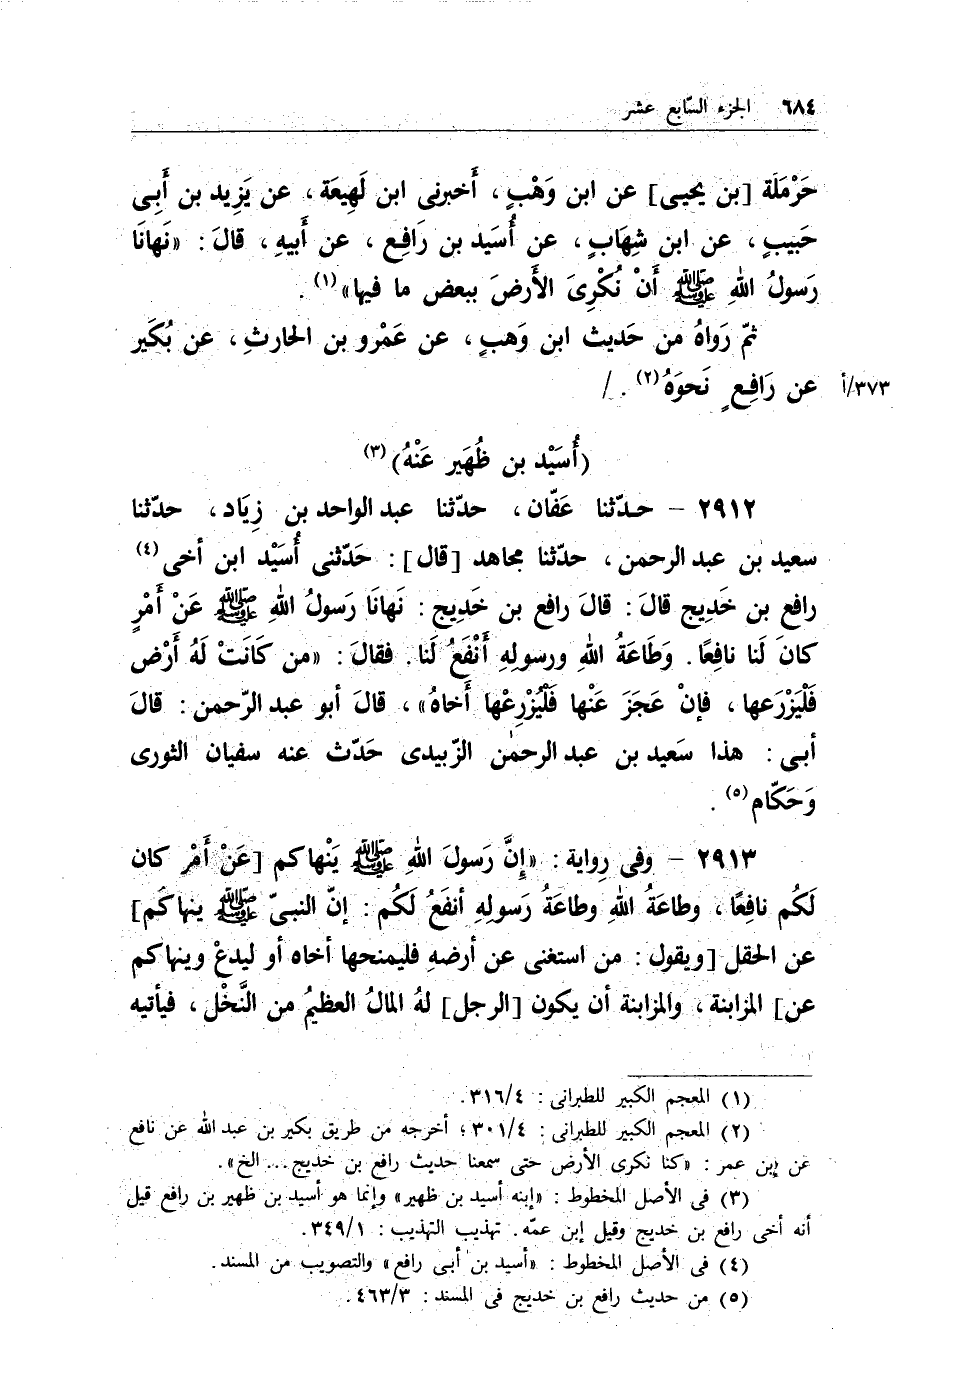 ٦٨٤ الجزء السّابع عشر
حَرْمَلَة [بن يحيـى] عن ابن وَهْبٍ، أَخبرنى ابن لَهِيعَة، عن يَزِيد بن أَبِى
حَبيبٍ، عن ابن شِهَابٍ، عن أُسَيد بن رَافِعٍ، عن أَبيهِ، قالَ: «نَهانَا
رَسولُ اللهِ ﷺ أَنْ نُكْرِىَ الأَرضَ ببعض ما فيها»(١).
ثمّ رَواهُ من حَديث ابن وَهبٍ، عن عَمْرو بن الحارثِ، عن بُكَير
٣٧٣/أ عن رَافِعٍ نَحوَهُ(٢). /
(أُسَيْد بن ظُهَير عَنْهُ)(٣)
٢٩١٢ – حـدّثنا عَفّان، حدّثنا عبد الواحد بن زِيَاد، حدّثنا
سعيد بن عبد الرحمن، حدّثنا مجاهد [قال]: حَدّثنى أُسَيْد ابن أخى(٤)
رافع بن خَدِيج قالَ: قالَ رافع بن خَدِيج: نَهانَا رَسولُ اللهِ ﷺ عَنْ أَمْرٍ
كانَ لَنا نافِعًا. وَطَاعَةُ اللهِ ورسولِهِ أَنْفَعُ لَنا. فقالَ: «من كَانَتْ لَهُ أَرْض
فَلْيَزْرَعها، فإنْ عَجَزَ عَنْها فَلْيُزْرِعْها أَخاهُ»، قالَ أبو عبد الرّحمن: قالَ
أبـى: هذا سَعيد بن عبد الرحمٰن الزّبيدى حَدّث عنه سفيان الثورى
وَحَكّام(٥).
٢٩١٣ – وفى رِواية: «إِنَّ رَسولَ اللهِ ﷺ يَنْهاكم [عَنْ أَمْر كان
لَكُم نافِعًا، وطاعَةُ اللهِ وطاعَةُ رَسولِهِ أنفَعُ لَكُم: إنّ النبـىّ ﷺ ينهاكَم]
عن الحقل [ويقول: من استغنى عن أرضهِ فليمنحها أخاه أو ليدعْ وينهاكم
عن] المزابنة، والمزابنة أن يكون [الرجل] لهُ المالُ العظيمُ من النَّخْل، فيأتيه
(١) المعجم الكبير للطبرانى: ٣١٦/٤.
(٢) المعجم الكبير للطبرانى: ٣٠١/٤؛ أخرجه من طريق بكير بن عبد الله عن نافع
عن إبن عمر: «كنا نكرى الأرض حتى سمعنا حديث رافع بن خديج... الخ».
(٣) فى الأصل المخطوط: «إبنه أسيد بن ظهير» وإنما هو أسيد بن ظهير بن رافع قيل
أنه أخى رافع بن خديج وقيل إبن عمّه. تهذيب التهذيب: ٣٤٩/١.
(٤) فى الأصل المخطوط: «أسيد بن أبـى رافع» والتصويب من المسند.
(٥) من حديث رافع بن خديج فى المسند: ٤٦٣/٣.